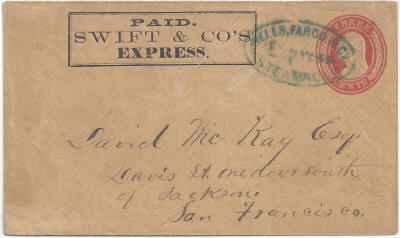 PAID.
SWIFT & CO'S
EXPRESS.
WELLS, FARGO & CO
STEAMBO
THREE
CENTS
David Mc Kay Esq
Davis St. one door south
of Jackson.
San Francisco.